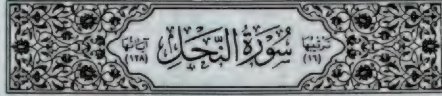 ترتيبها (١٦) سُورَةُ النَّحْلِ آياتها (١٢٨)